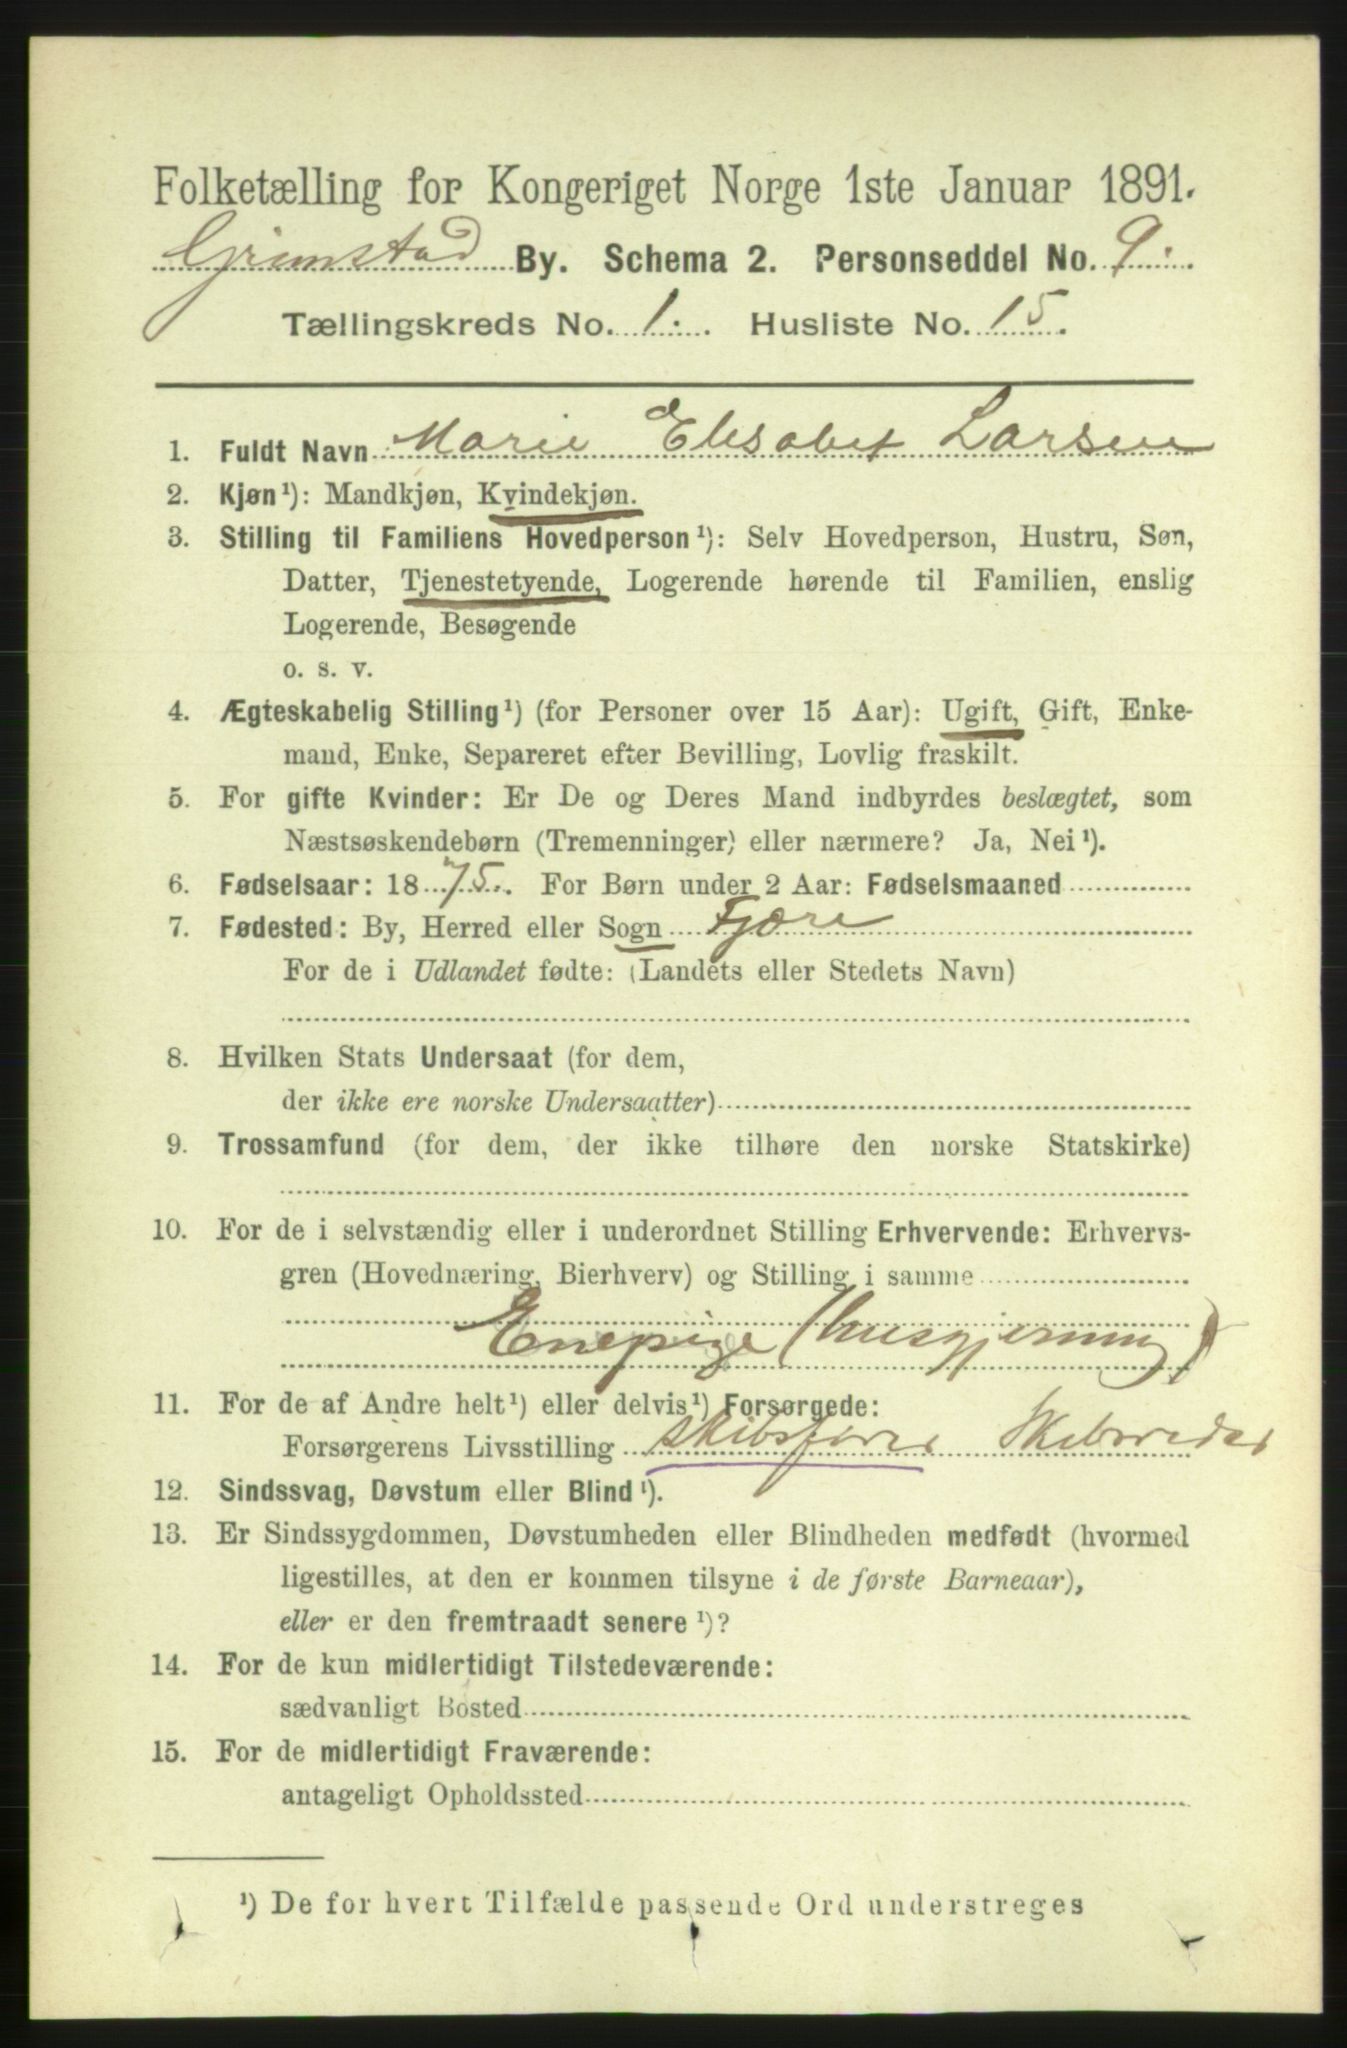 Folketælling for Kongeriget Norge 1ste Januar 1891.
Grimstad By. Schema 2. Personseddel No. 9.
Tællingskreds No. 1. Husliste No. 15.
1. Fuldt Navn Marie Elisabet Larsen
2. Kjøn¹): Mandkjøn, Kvindekjøn.
3. Stilling til Familiens Hovedperson¹): Selv Hovedperson, Hustru, Søn,
Datter, Tjenestetyende, Logerende hørende til Familien, enslig
Logerende, Besøgende
o. s. v.
4. Ægteskabelig Stilling¹) (for Personer over 15 Aar): Ugift, Gift, Enke-
mand, Enke, Separeret efter Bevilling, Lovlig fraskilt.
5. For gifte Kvinder: Er De og Deres Mand indbyrdes beslægtet, som
Næstsøskendebørn (Tremenninger) eller nærmere? Ja, Nei¹).
6. Fødselsaar: 1875. For Børn under 2 Aar: Fødselsmaaned
7. Fødested: By, Herred eller Sogn Fjære
For de i Udlandet fødte: (Landets eller Stedets Navn)
8. Hvilken Stats Undersaat (for dem,
der ikke ere norske Undersaatter)
9. Trossamfund (for dem, der ikke tilhøre den norske Statskirke)
10. For de i selvstændig eller i underordnet Stilling Erhvervende: Erhvervs-
gren (Hovednæring, Bierhverv) og Stilling i samme
Enepige (husgjerning)
11. For de af Andre helt¹) eller delvis¹) Forsørgede:
Forsørgerens Livsstilling skibsfører Skibsreder
12. Sindssvag, Døvstum eller Blind¹).
13. Er Sindssygdommen, Døvstumheden eller Blindheden medfødt (hvormed
ligestilles, at den er kommen tilsyne i de første Barneaar),
eller er den fremtraadt senere¹)?
14. For de kun midlertidigt Tilstedeværende:
sædvanligt Bosted
15. For de midlertidigt Fraværende:
antageligt Opholdssted
¹) De for hvert Tilfælde passende Ord understreges